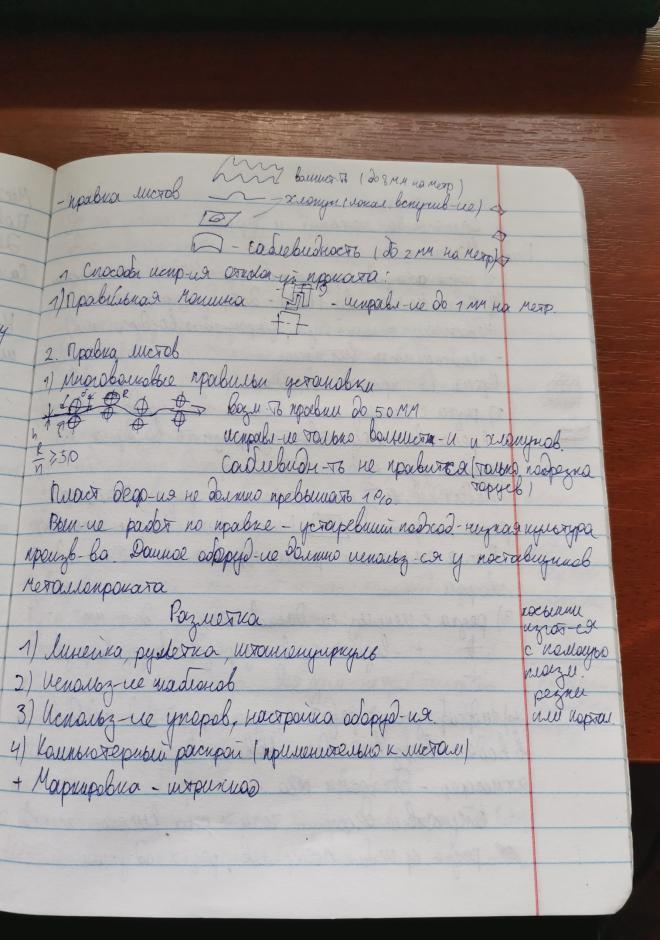 волнист-ть (до 8 мм на метр)
- правка листов
- хлопун (локал. вспучив-ие)
- саблевидность (до 2 мм на метр)
1. Способы испр-ия отклон-ий проката:
1) Правильная машина - исправл-ие до 1 мм на метр.
2. Правка листов
1) многовалковые правильн установки
возм-ть правки до 50 мм
исправл-ие только волнист-и и хлопунов.
R/n ≥ 50
Саблевидн-ть не правится (только подрезка
торцев)
Пласт деф-ия не должно превышать 1%.
Вып-ие работ по правке – устаревший подход - низкая культура
произв-ва. Данное оборуд-ие должно использ-ся у поставщиков
металлопроката
Разметка
1) Линейка, рулетка, штангенциркуль
2) Использ-ие шаблонов
3) Использ-ие упоров, настройка оборуд-ия.
4) Компьютерный раскрой (применительно к листам)
+ Маркировка - штрихкод
косынки
изгот-ся
с помощью
плазм.
резки
или портал